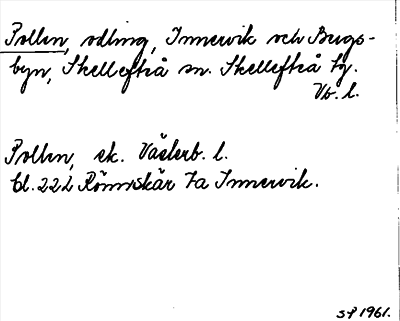 Pollen, odling, Innervik och Bergs-
byn, Skellefteå sn. Skellefteå tg.
Vb. l.
Pollen, ek. Västerb. l.
bl. 222 Rönnskär 7a Innervik.
SP 1961.